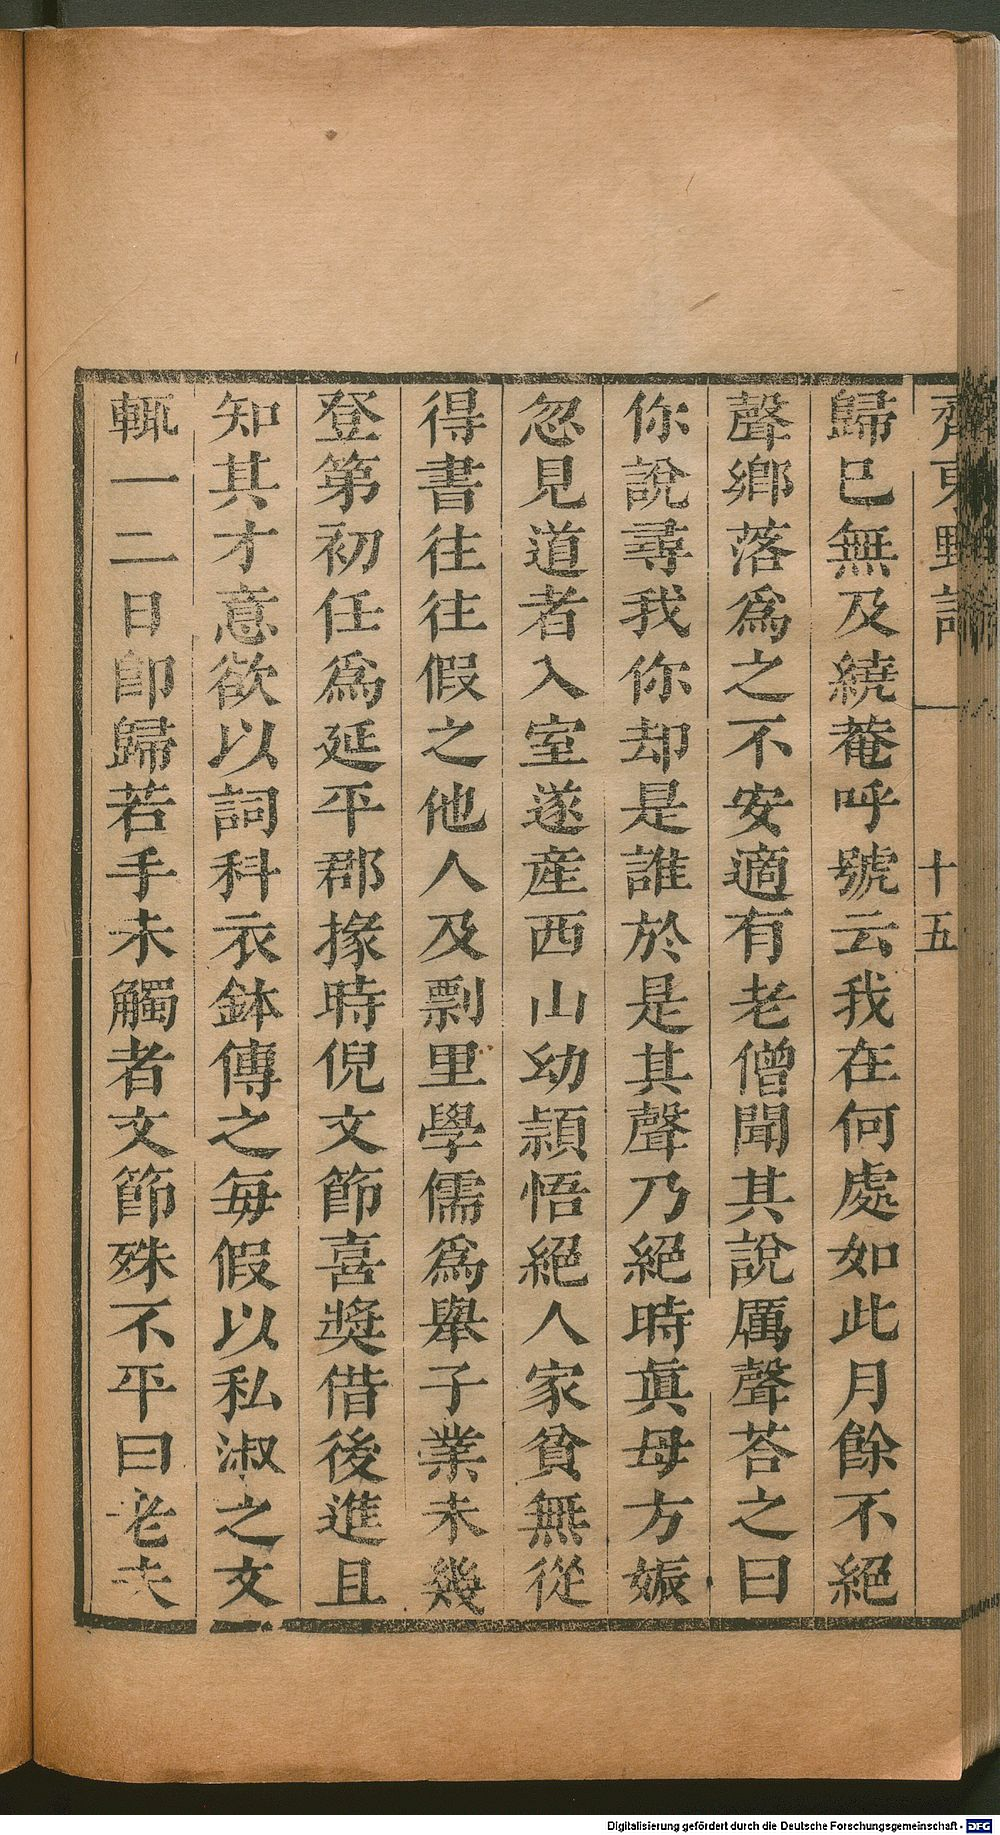 齊東野語
十五
歸已無及繞菴呼號云我在何處如此月餘不絕
聲鄉落爲之不安適有老僧聞其說厲聲荅之曰
你說尋我你却是誰於是其聲乃絕時眞母方娠
忽見道者入室遂產西山幼頴悟絕人家貧無從
得書往往假之他人及剽里學儒爲舉子業未幾
登第初任爲延平郡掾時倪文節喜奬借後進且
知其才意欲以詞科衣鉢傳之每假以私淑之文
輒一二日卽歸若手未觸者文節殊不平曰老夫
Digitalisierung gefördert durch die Deutsche Forschungsgemeinschaft - DFG